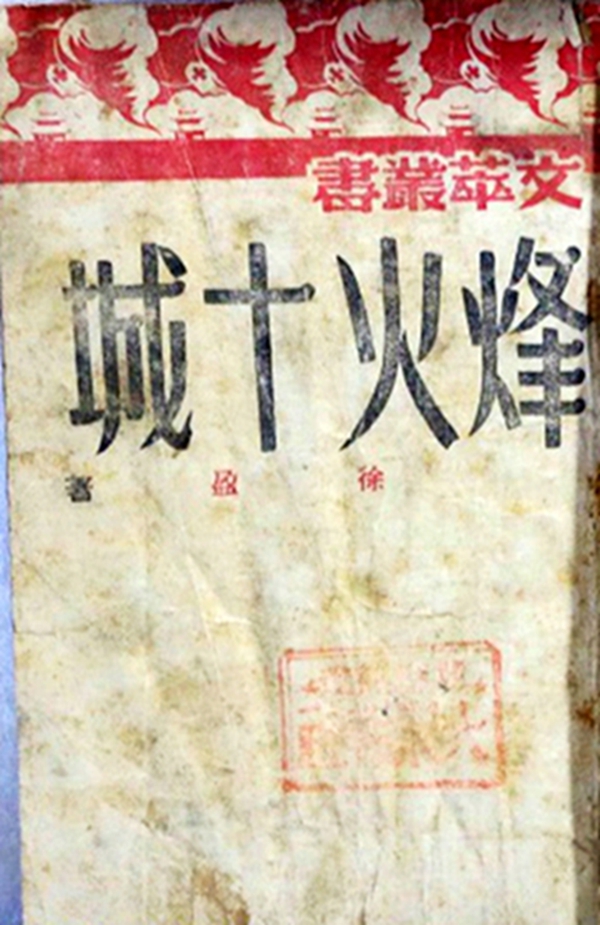 文萃叢書
烽火十城
徐盈著